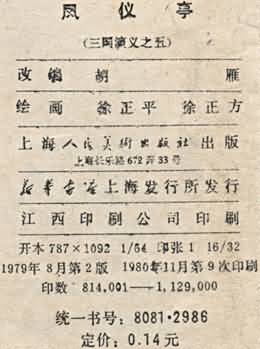 凤仪亭
(三国演义之五)
改编 胡雁
绘画 徐正平 徐正方
上海人民美术出版社出版
上海长乐路672弄33号
新华书店上海发行所发行
江西印刷公司印刷
开本787×1092 1/64 印张1 16/32
1979年8月第2版 1980年11月第9次印刷
印数 814,001—1,129,000
统一书号:8081·2986
定价:0.14元